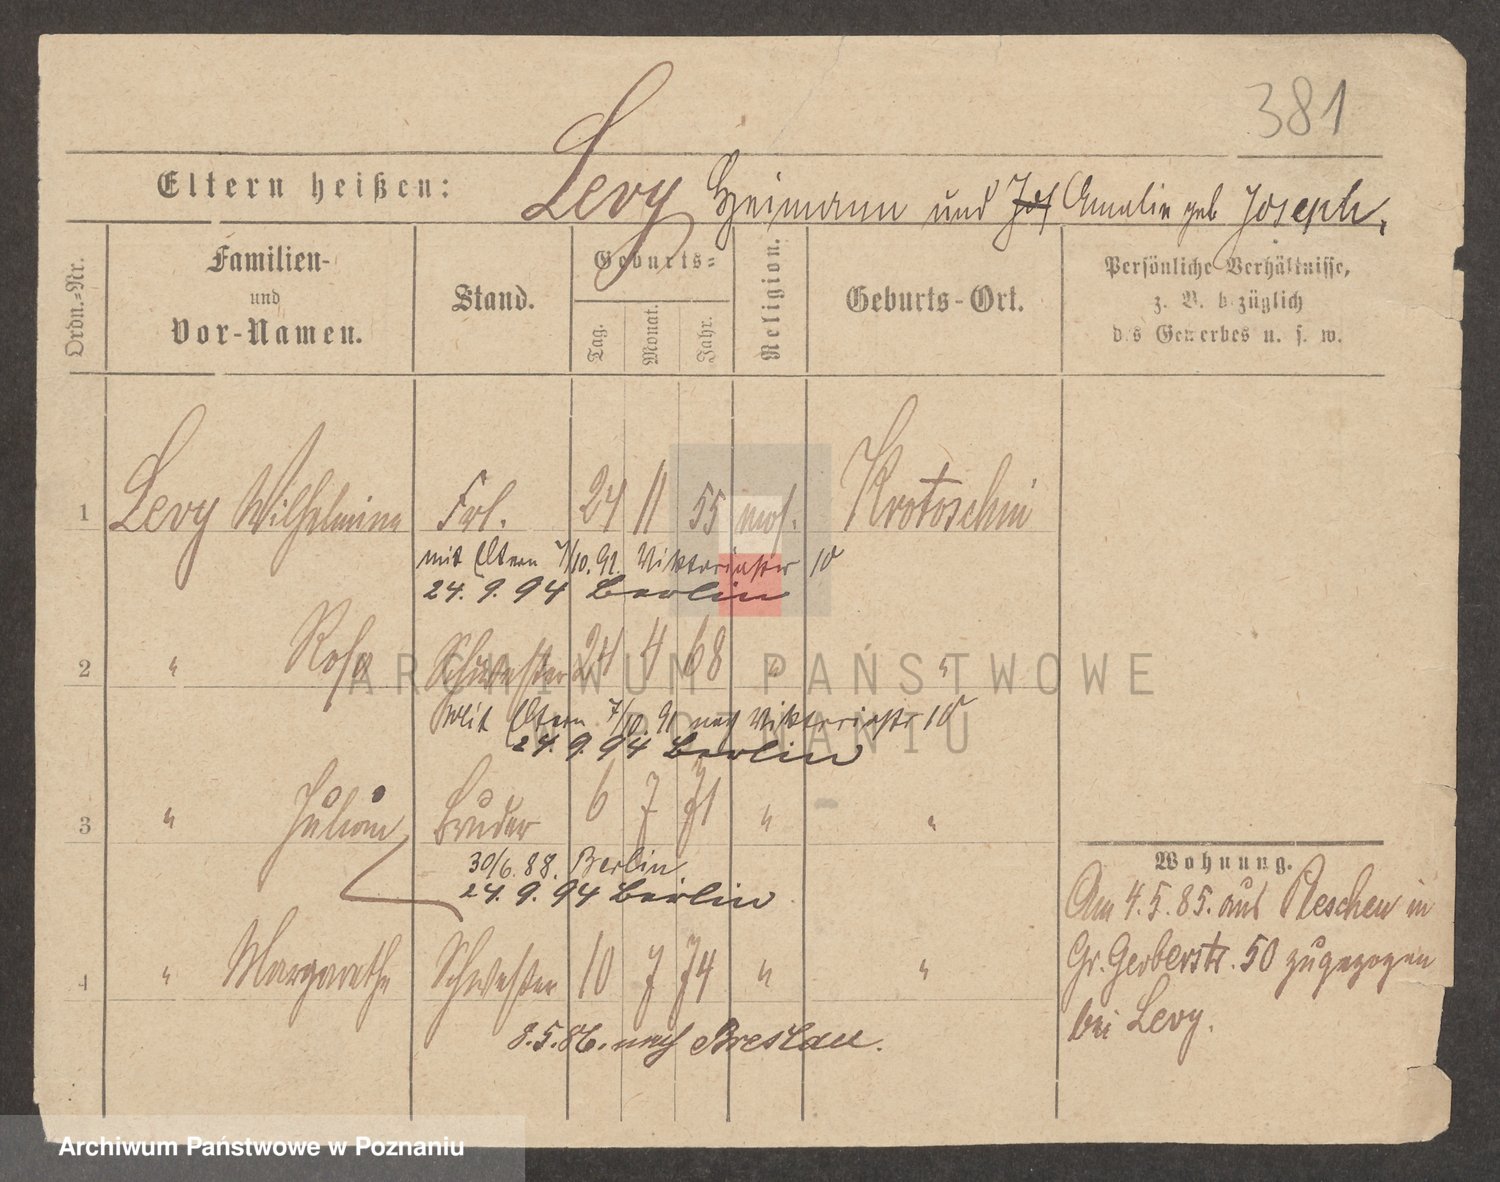 381
Eltern heißen: Levy Heimann und Jos Amalie geb Joseph.
Ordn.=Nr.
Familien-
und
Vor-Namen.
Stand.
Geburts=
Tag.
Monat.
Jahr.
Religion.
Geburts-Ort.
Persönliche Verhältnisse,
z. B. bezüglich
des Gewerbes u. s. w.
1 Levy Wilhelmine Frl. 24 11 55 mos. Krotoschin
mit Eltern 7/10. 91. Viktoriastr 10
24. 9. 94 Berlin
2 " Rosa Schwester 24 4 68 " "
Mit Eltern 7/10. 91 nach Viktoriastr 10
24. 9. 94 Berlin
3 " Julian Bruder 6 7 71 " "
30/6. 88. Berlin
24. 9. 94 Berlin
4 " Margarethe Schwester 10 7 74 " "
8. 5. 86. nach Breslau.
Wohnung.
Am 4. 5. 85. aus Pleschen in
Gr. Gerberstr. 50 zugezogen
bei Levy.
ARCHIWUM PAŃSTWOWE
W POZNANIU
Archiwum Państwowe w Poznaniu